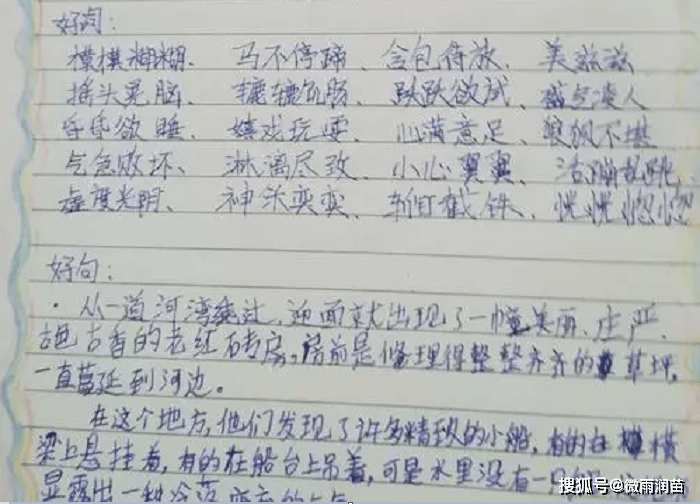 好词:
模模糊糊、 马不停蹄、含包待放、美滋滋
摇头晃脑、 辘辘饥肠、跃跃欲试、盛气凌人
昏昏欲睡、嬉戏玩耍、心满意足、狼狈不堪
气急败坏、淋漓尽致、小心翼翼、活蹦乱跳、
虚度光阴、神采奕奕、斩钉截铁、恍恍惚惚
好句:
·从一道河湾绕过,迎面就出现了一幢美丽、庄严、
古色古香的老红砖房,房前是修理得整整齐齐的草坪,
一直蔓延到河边。
在这个地方,他们发现了许多精致的小船,有的在横
梁上悬挂着,有的在船台上吊着,可是水里没有一只
显露出一种冷落
搜狐号@微雨润苗